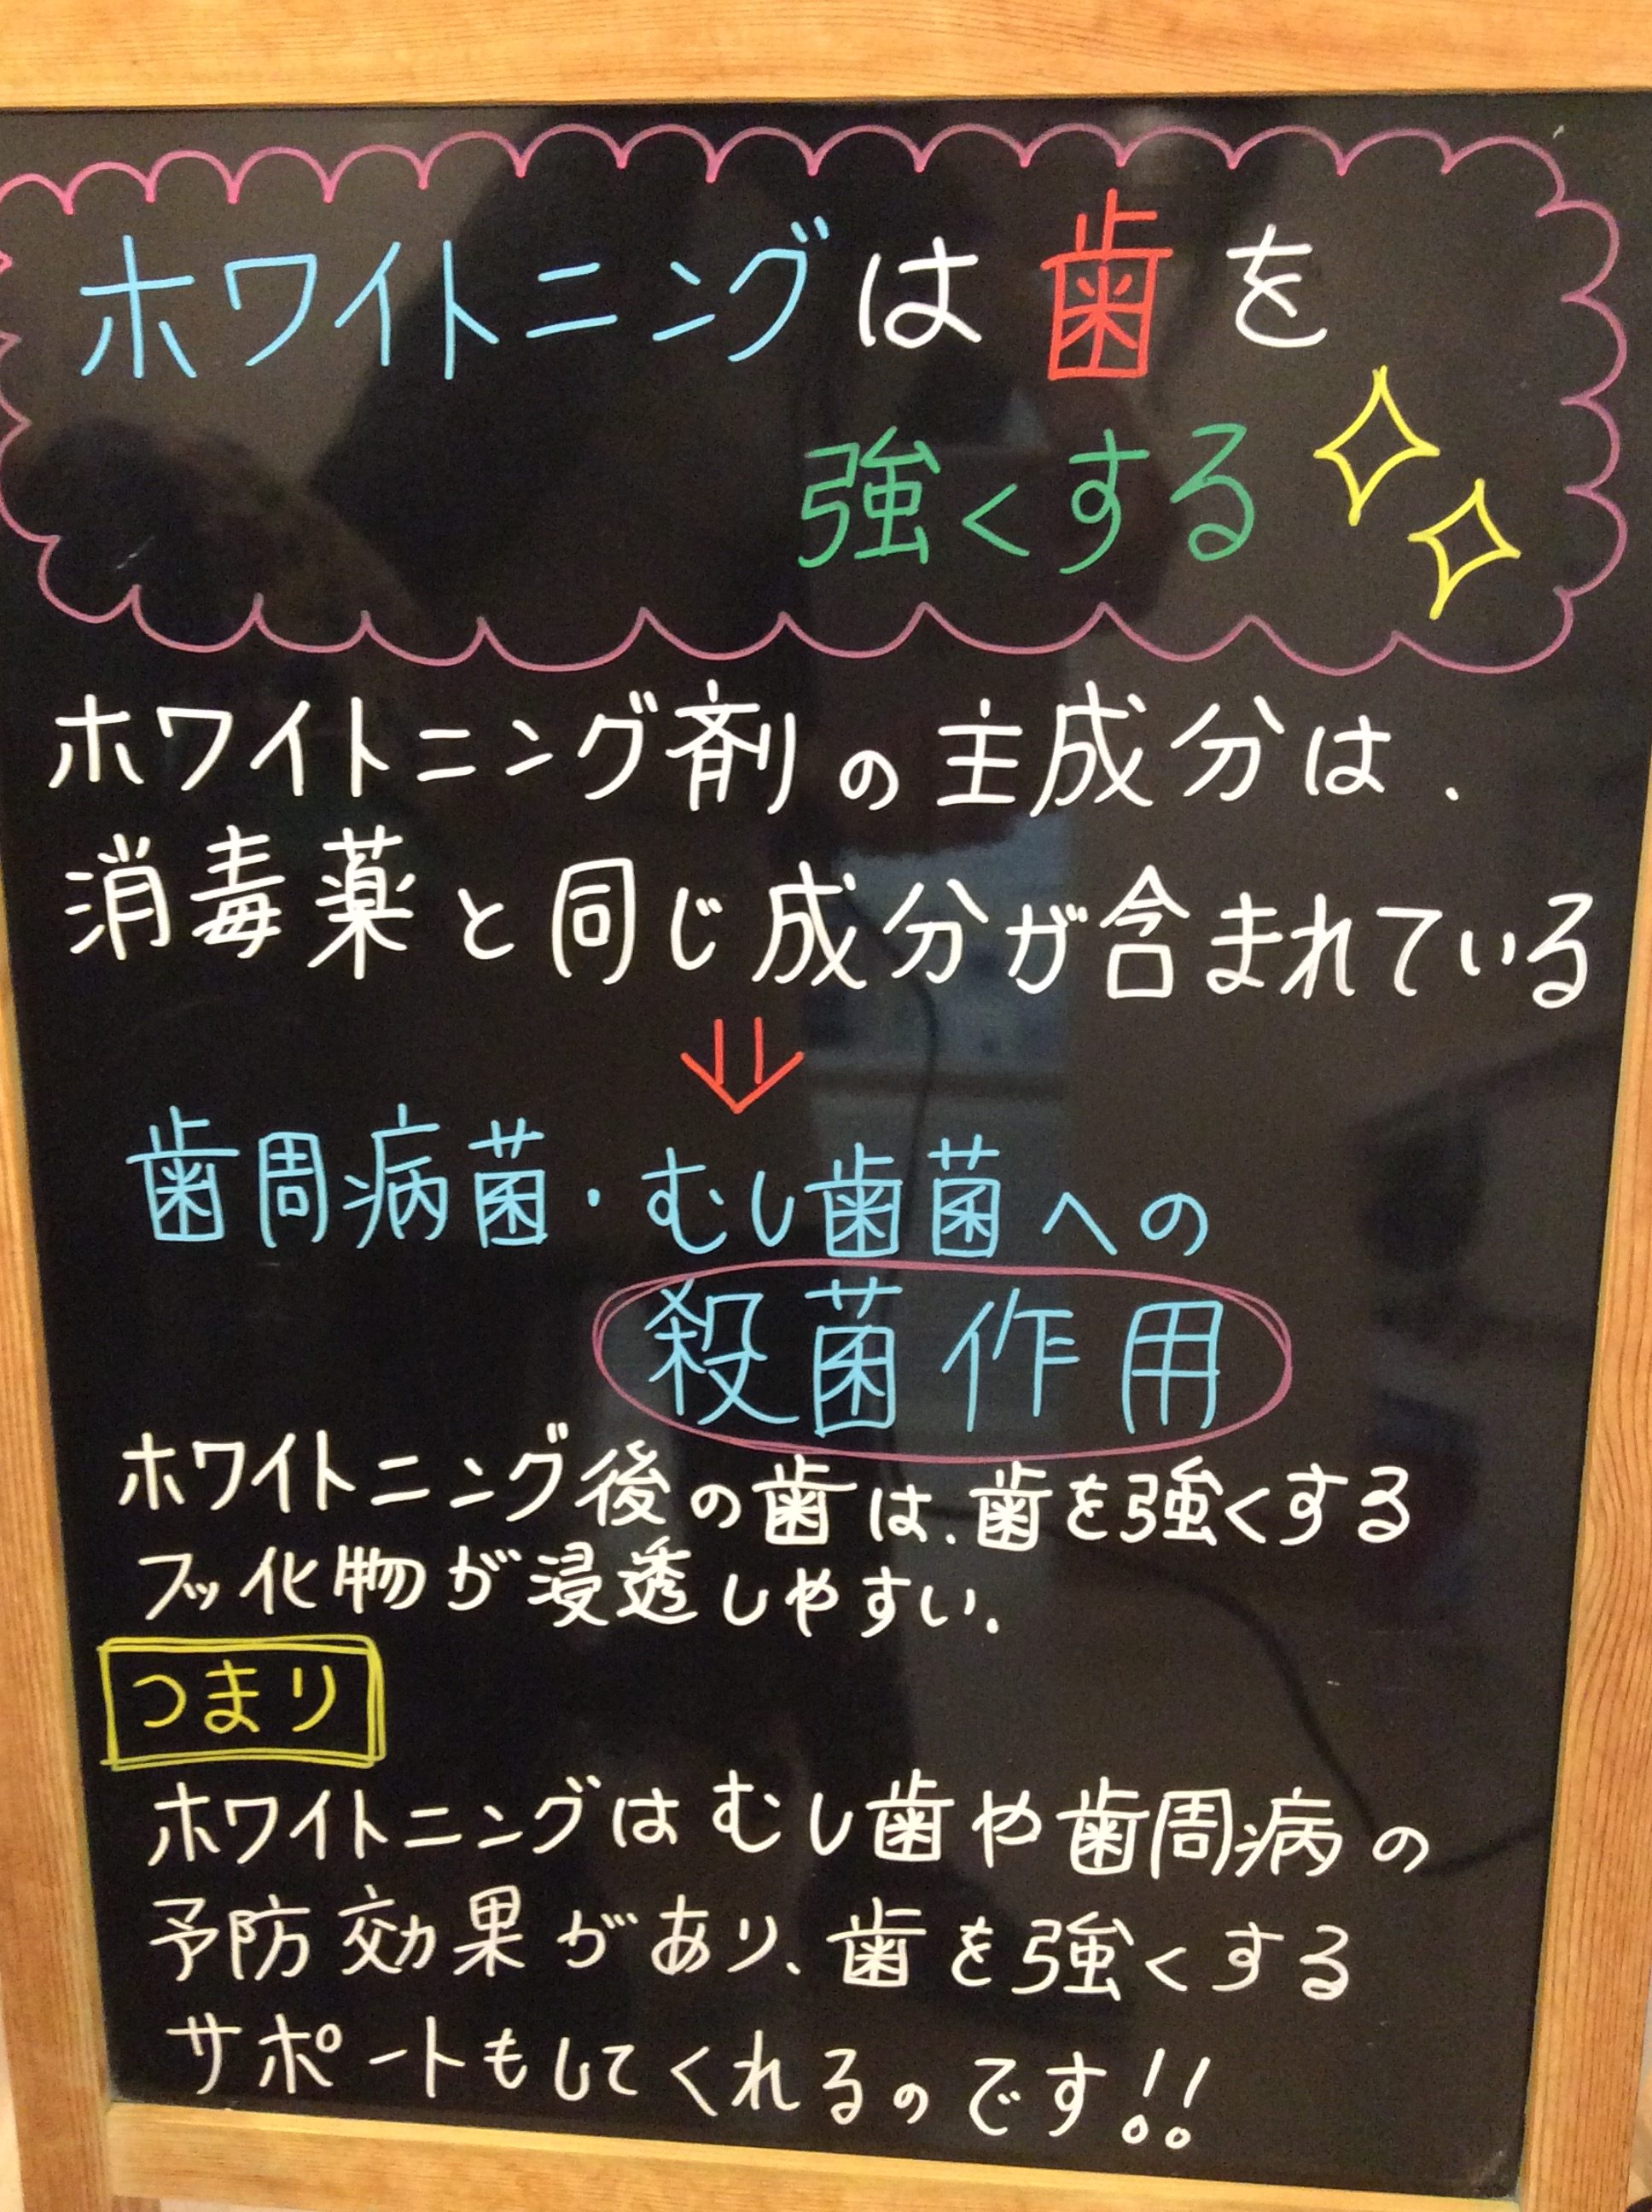 ホワイトニングは歯を
強くする
ホワイトニング剤の主成分は、
消毒薬と同じ成分が含まれている
⇓
歯周病菌・むし歯菌への
殺菌作用
ホワイトニング後の歯は、歯を強くする
フッ化物が浸透しやすい。
つまり
ホワイトニングはむし歯や歯周病の
予防効果があり、歯を強くする
サポートもしてくれるのです!!